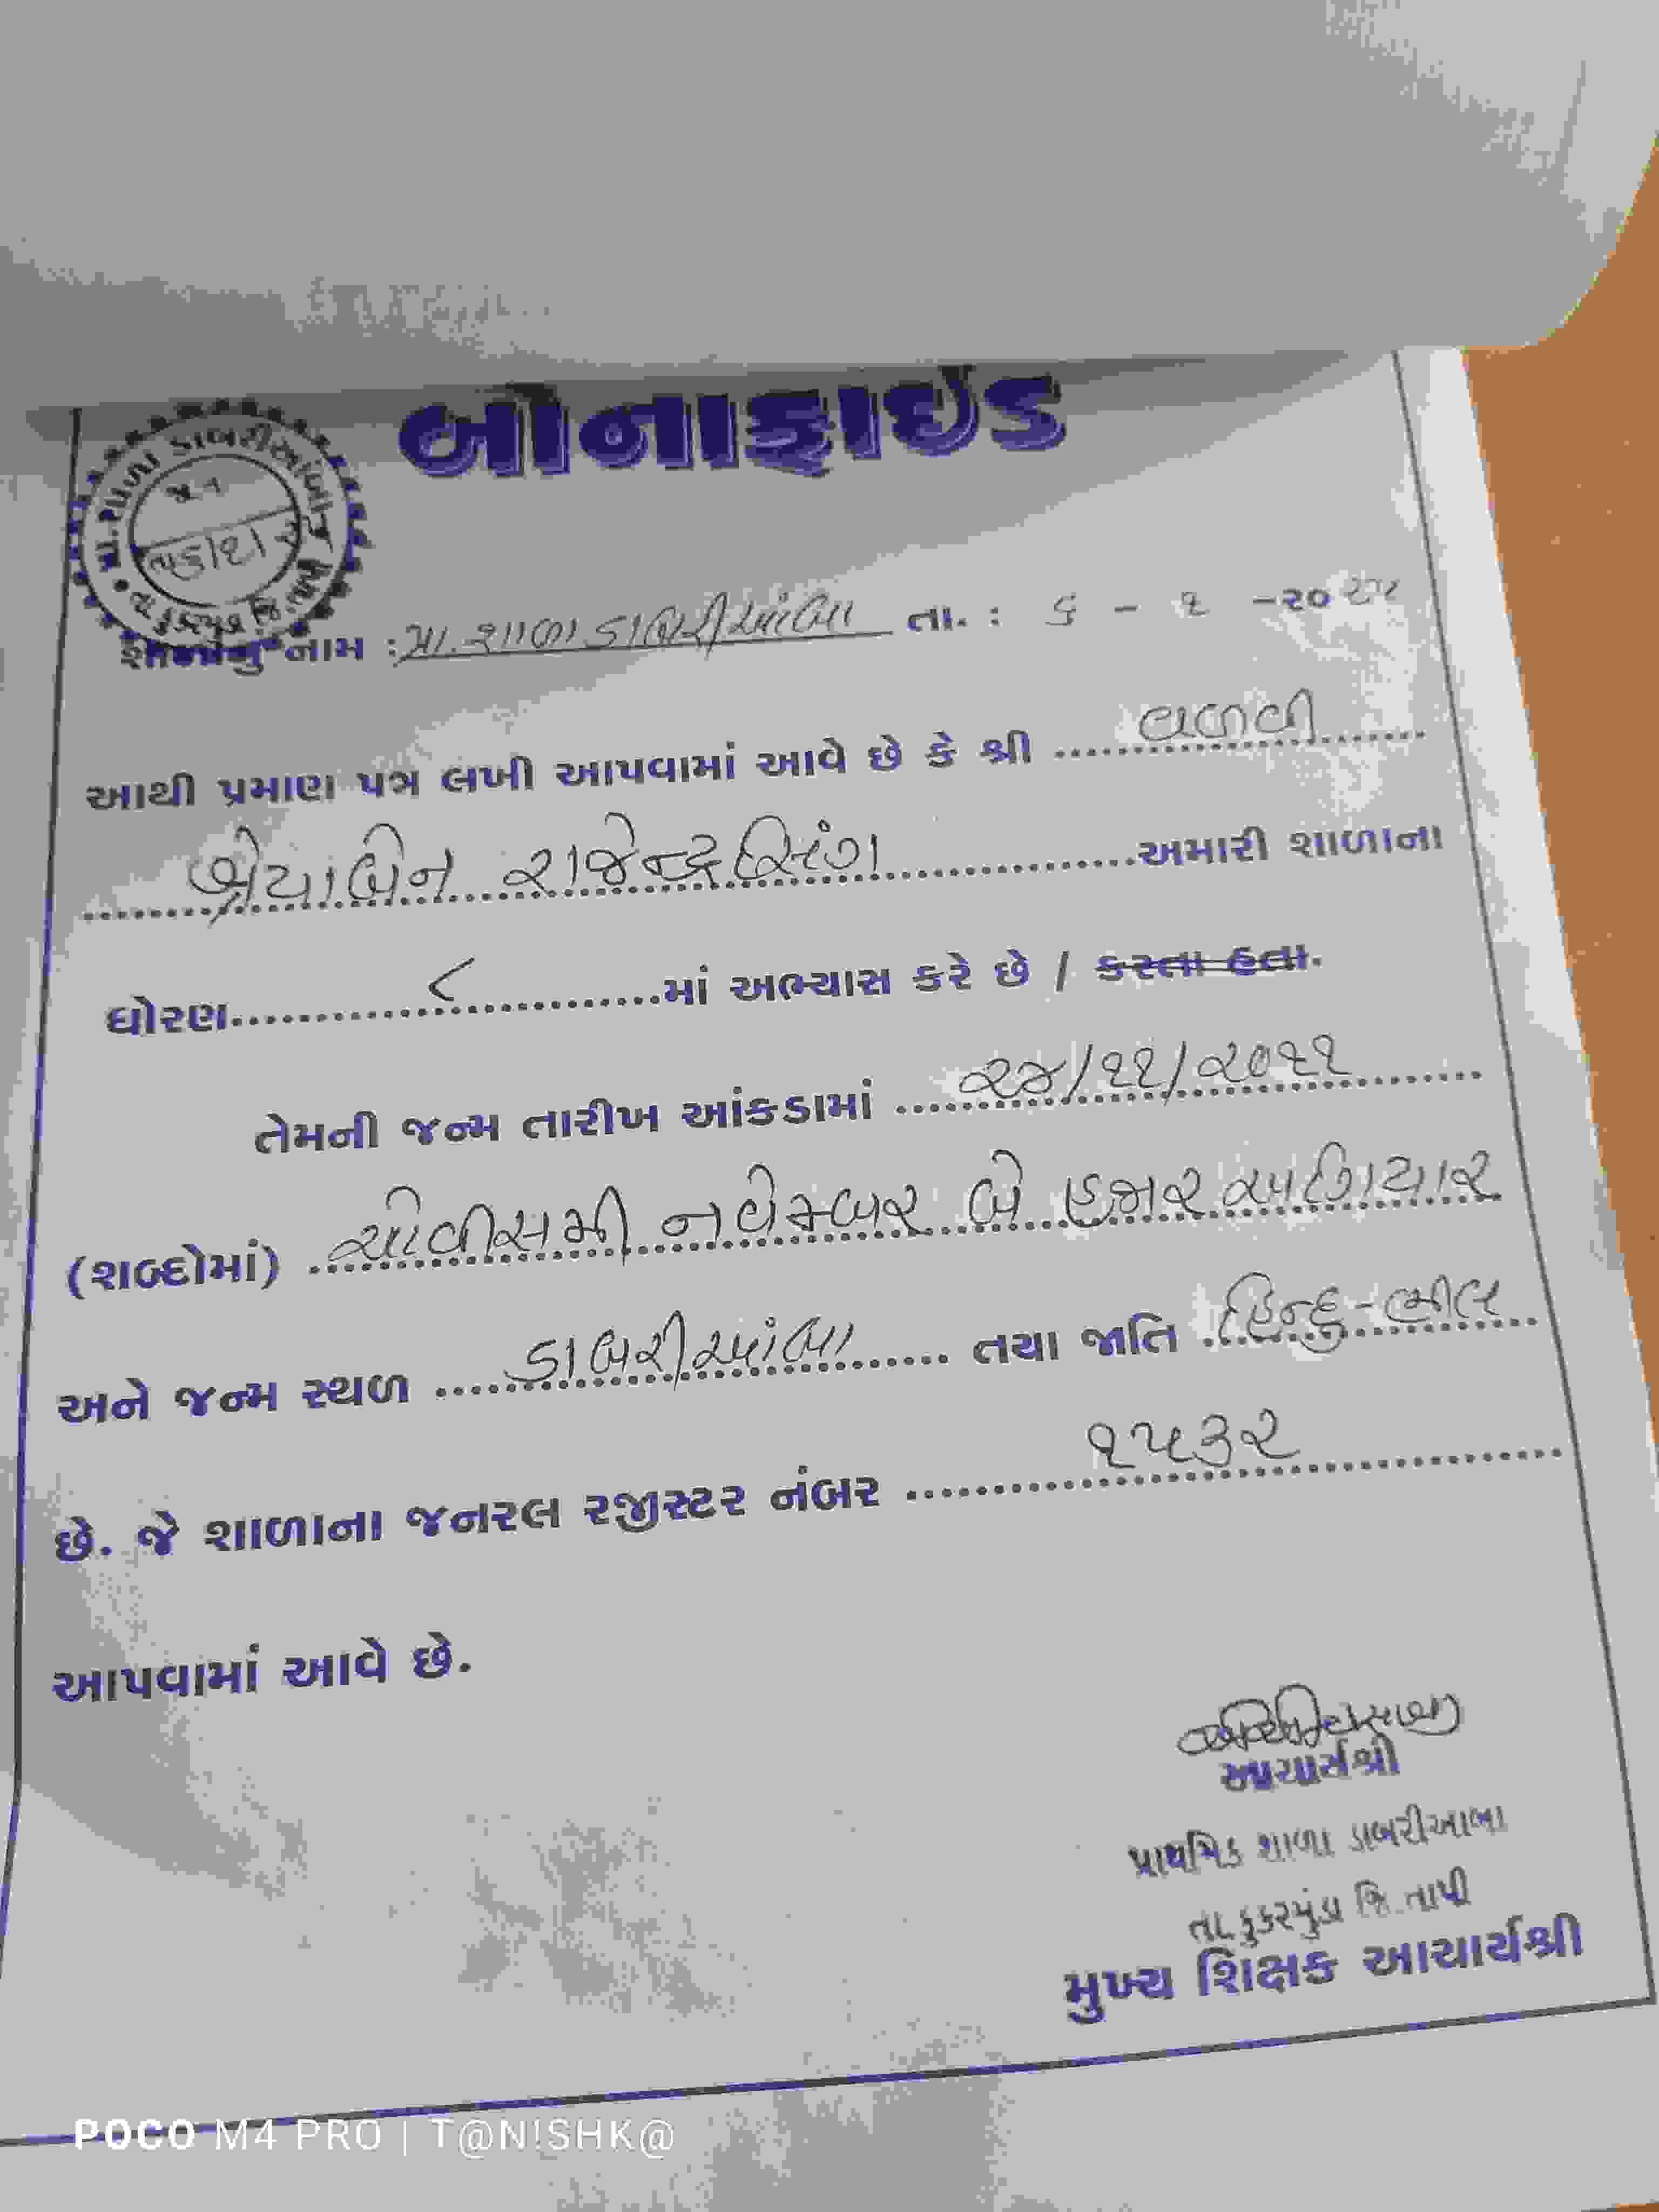 બોનાફાઈડ
પ્રા. શાળા ડાબરીઆંબા
નામ : પ્રા. શાળા ડાબરીઆંબા તા. : ૬ - ૧ - ૨૦
આથી પ્રમાણ પત્ર લખી આપવામાં આવે છે કે શ્રી વળવી
શ્રેયાબેન રાજેન્દ્રસિંગ અમારી શાળાના
ધોરણ ૮ માં અભ્યાસ કરે છે / કરતા હતા.
તેમની જન્મ તારીખ આંકડામાં ૨૪/૧૧/૨૦૧૧
(શબ્દોમાં) ચોવીસમી નવેમ્બર બે હજાર અગિયાર
અને જન્મ સ્થળ ડાબરીઆંબા તથા જાતિ હિન્દુ-ભીલ
છે. જે શાળાના જનરલ રજીસ્ટર નંબર ૧૫૩૨
આપવામાં આવે છે.
આચાર્યશ્રી
પ્રાથમિક શાળા ડાબરીઆંબા
તા. કુકરમુંડા જિ. તાપી
મુખ્ય શિક્ષક આચાર્યશ્રી
POCO M4 PRO | T@N!SHK@